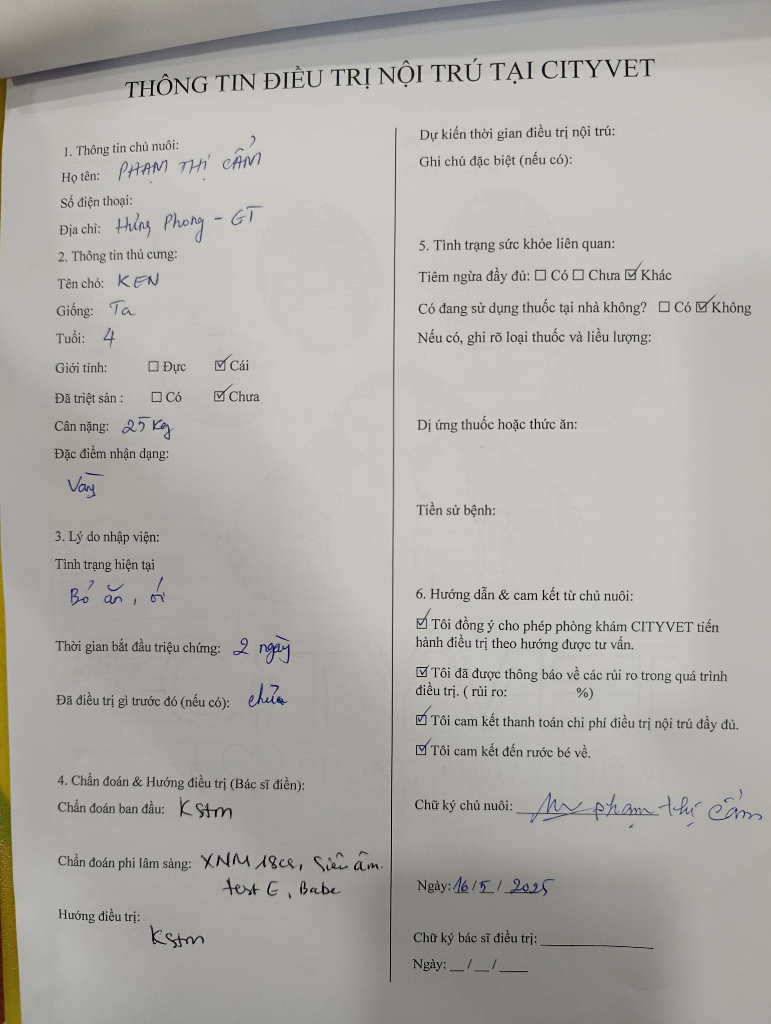 THÔNG TIN ĐIỀU TRỊ NỘI TRÚ TẠI CITYVET
1. Thông tin chủ nuôi:
Họ tên: PHẠM THỊ CẨM
Số điện thoại:
Địa chỉ: Hưng Phong - GT
2. Thông tin thú cưng:
Tên chó: KEN
Giống: Ta
Tuổi: 4
Giới tính: ☐ Đực ☑ Cái
Đã triệt sản : ☐ Có ☑ Chưa
Cân nặng: 25 Kg
Đặc điểm nhận dạng:
Vàng
3. Lý do nhập viện:
Tình trạng hiện tại
Bỏ ăn, ói
Thời gian bắt đầu triệu chứng: 2 ngày
Đã điều trị gì trước đó (nếu có): chưa
4. Chẩn đoán & Hướng điều trị (Bác sĩ điền):
Chẩn đoán ban đầu: KStm
Chẩn đoán phi lâm sàng: XNM 18cs, Siêu âm.
test E, Babe
Hướng điều trị:
KStm
Dự kiến thời gian điều trị nội trú:
Ghi chú đặc biệt (nếu có):
5. Tình trạng sức khỏe liên quan:
Tiêm ngừa đầy đủ: ☐ Có ☐ Chưa ☑ Khác
Có đang sử dụng thuốc tại nhà không? ☐ Có ☑ Không
Nếu có, ghi rõ loại thuốc và liều lượng:
Dị ứng thuốc hoặc thức ăn:
Tiền sử bệnh:
6. Hướng dẫn & cam kết từ chủ nuôi:
☑ Tôi đồng ý cho phép phòng khám CITYVET tiến
hành điều trị theo hướng được tư vấn.
☑ Tôi đã được thông báo về các rủi ro trong quá trình
điều trị. ( rủi ro: %)
☑ Tôi cam kết thanh toán chi phí điều trị nội trú đầy đủ.
☑ Tôi cam kết đến rước bé về.
Chữ ký chủ nuôi: phạm thị cẩm
Ngày: 16 / 5 / 2025
Chữ ký bác sĩ điều trị: ____________
Ngày: __ / __ / ____